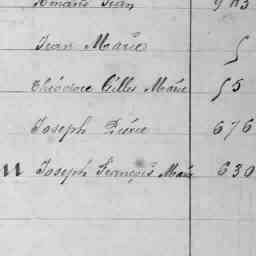 Jean
Jean Marie
Théodore Gilles Marie 55
Joseph Pierre 676
Joseph François Marie 630